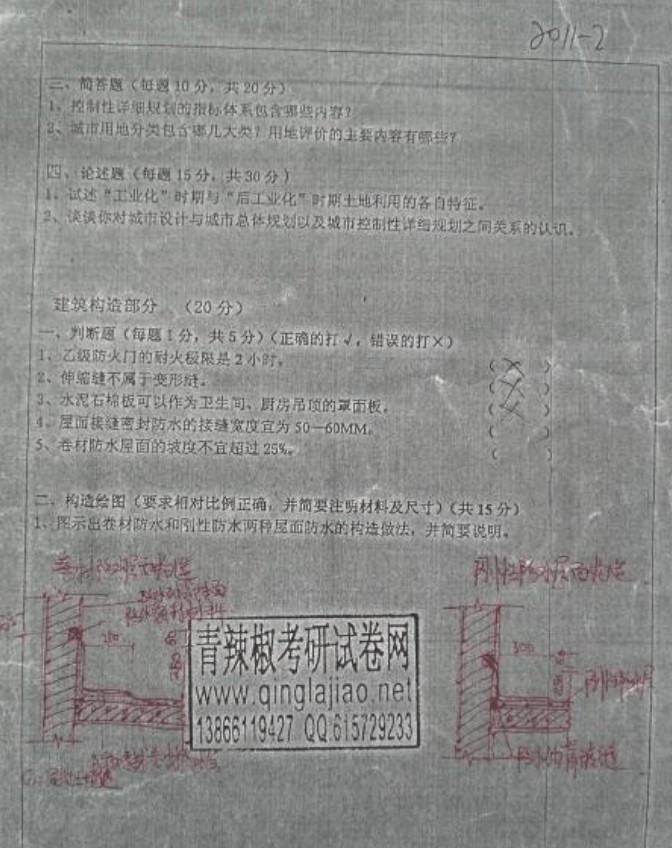 2011-2
三、简答题（每题10分，共20分）
1、控制性详细规划的指标体系包含哪些内容？
2、城市用地分类包含哪几大类？用地评价的主要内容有哪些？
四、论述题（每题15分，共30分）
1、试述“工业化”时期与“后工业化”时期土地利用的各自特征。
2、谈谈你对城市设计与城市总体规划以及城市控制性详细规划之间关系的认识。
建筑构造部分 （20分）
一、判断题（每题1分，共5分）（正确的打√，错误的打×）
1、乙级防火门的耐火极限是2小时。 （×）
2、伸缩缝不属于变形缝。 （×）
3、水泥石棉板可以作为卫生间、厨房吊顶的罩面板。 （×）
4、屋面接缝密封防水的接缝宽度宜为50—60MM。 （ ）
5、卷材防水屋面的坡度不宜超过25%。 （ ）
二、构造绘图（要求相对比例正确，并简要注明材料及尺寸）（共15分）
1、图示出卷材防水和刚性防水两种屋面防水的构造做法，并简要说明。
刚性防水屋面构造
300
青辣椒考研试卷网
www.qinglajiao.net
13866119427 QQ:615729233